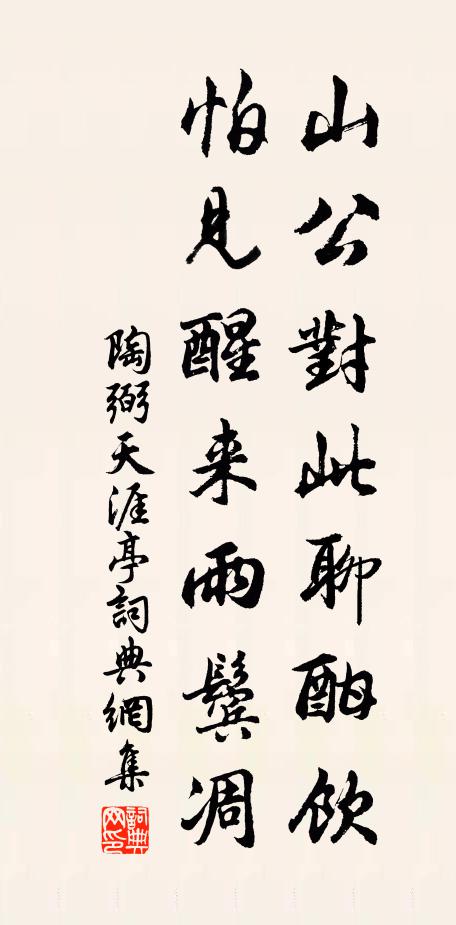 山公對此聊酣飲
怕見醒来兩鬢凋
陶弼天涯亭詞典網集
詞典网印